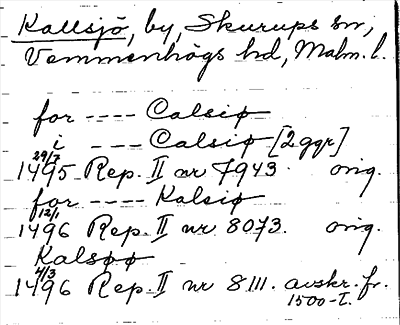 Kallsjö, by, Skurups sn,
Vemmenhögs hd, Malm. l.
for ---- Calsiø
i --- Calsiø [2 ggr]
29/7
1495 Rep. II nr 7943. orig.
for ---- Kalsiø
12/1
1496 Rep. II nr 8073. orig.
Kalsøø
4/3
1496 Rep. II nr 8111. avskr. fr.
1500-t.